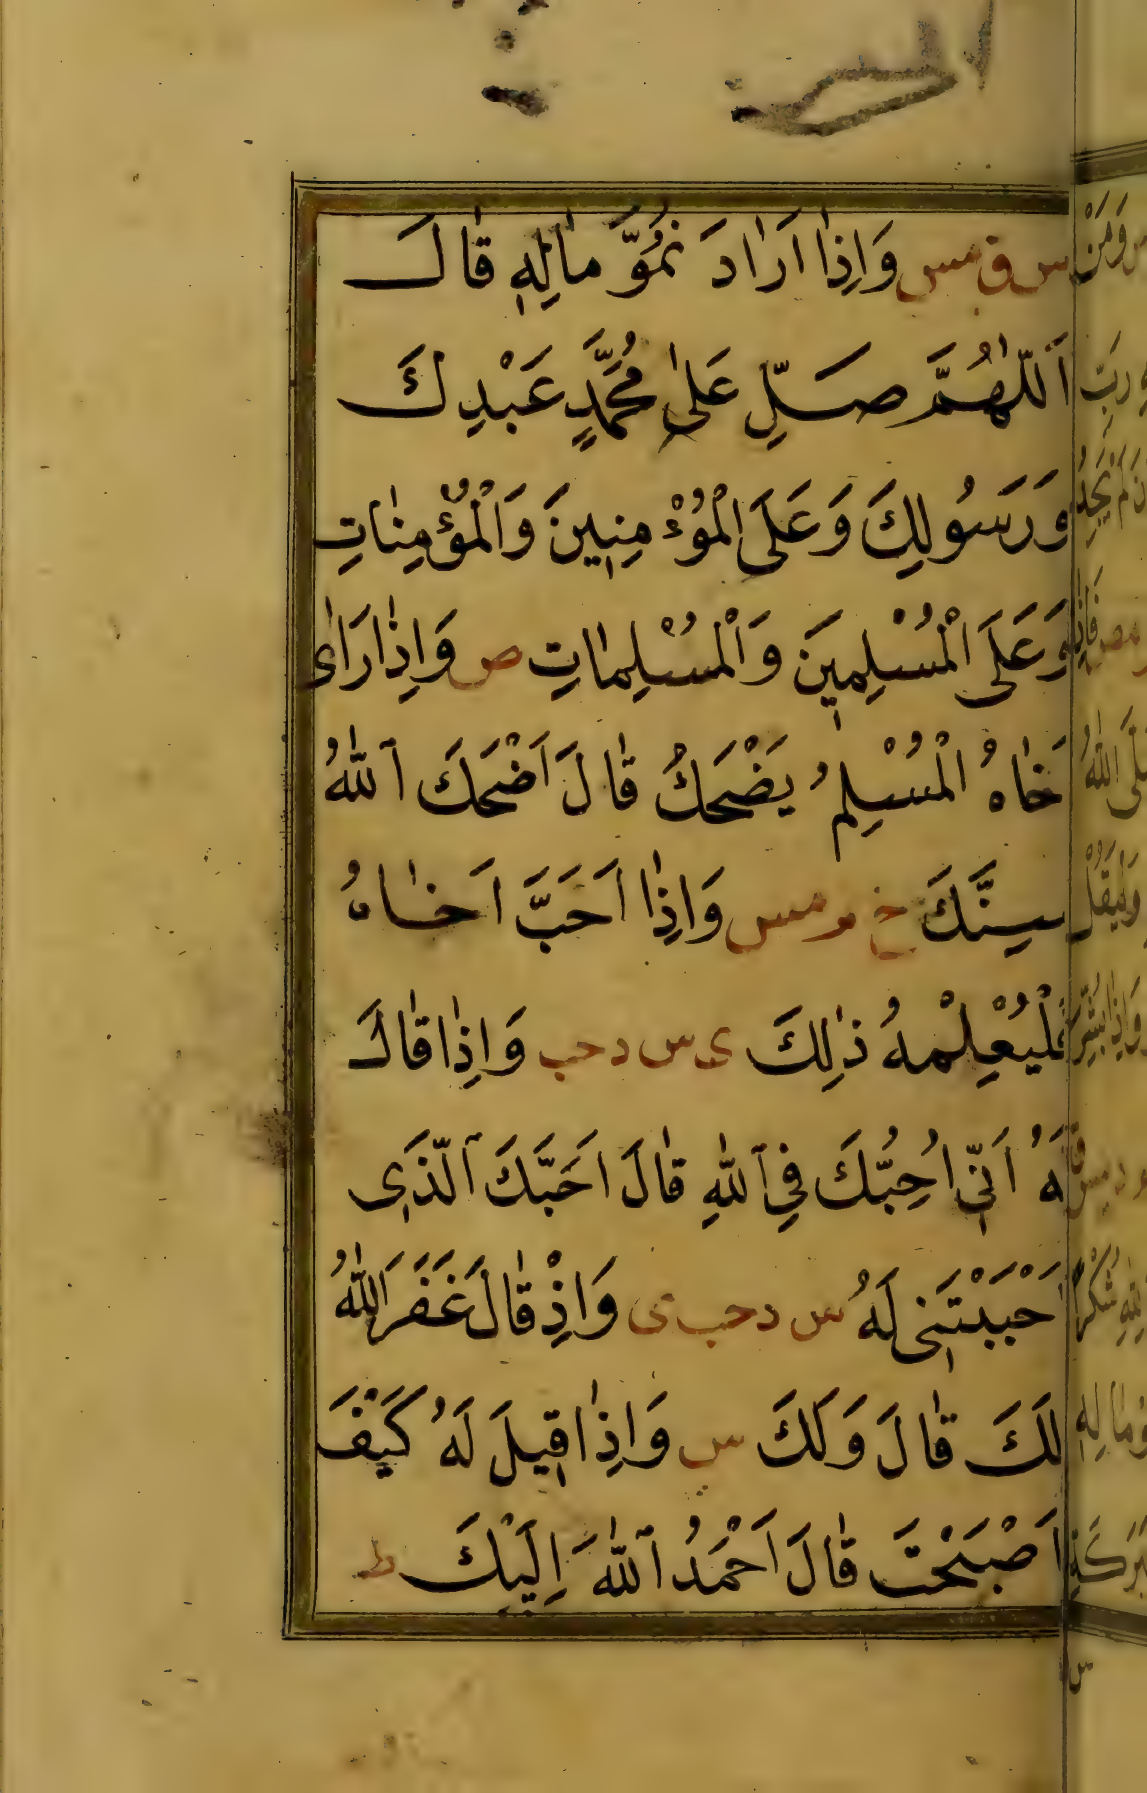 س ق مس وَاِذٰا اَرٰادَ نُمُوَّ مٰالِهِ قٰالَ
اَللّٰهُمَّ صَلِّ عَلىٰ مُحَمَّدٍ عَبْدِكَ
وَرَسُولِكَ وَعَلَى الْمُؤْمِنِينَ وَالْمُؤْمِنٰاتِ
وَعَلَى الْمُسْلِمِينَ وَالْمُسْلِمٰاتِ ص وَاِذٰا رَاٰى
خٰاهُ الْمُسْلِمُ يَضْحَكُ قٰالَ اَضْحَكَ اللّٰهُ
سِنَّكَ خ م مس وَاِذٰا اَحَبَّ اَخٰاهُ
فَلْيُعْلِمْهُ ذٰلِكَ ى س د حب وَاِذٰا قٰالَ
لَهُ اَنِّى اُحِبُّكَ فِى اللّٰهِ قٰالَ اَحَبَّكَ الَّذَى
اَحْبَبْتَنِى لَهُ س د حب ى وَاِذْ قٰالَ غَفَرَ اللّٰهُ
لَكَ قٰالَ وَلَكَ س وَاِذٰا قِيلَ لَهُ كَيْفَ
اَصْبَحْتَ قٰالَ اَحْمَدُ اللّٰهَ اِلَيْكَ ط